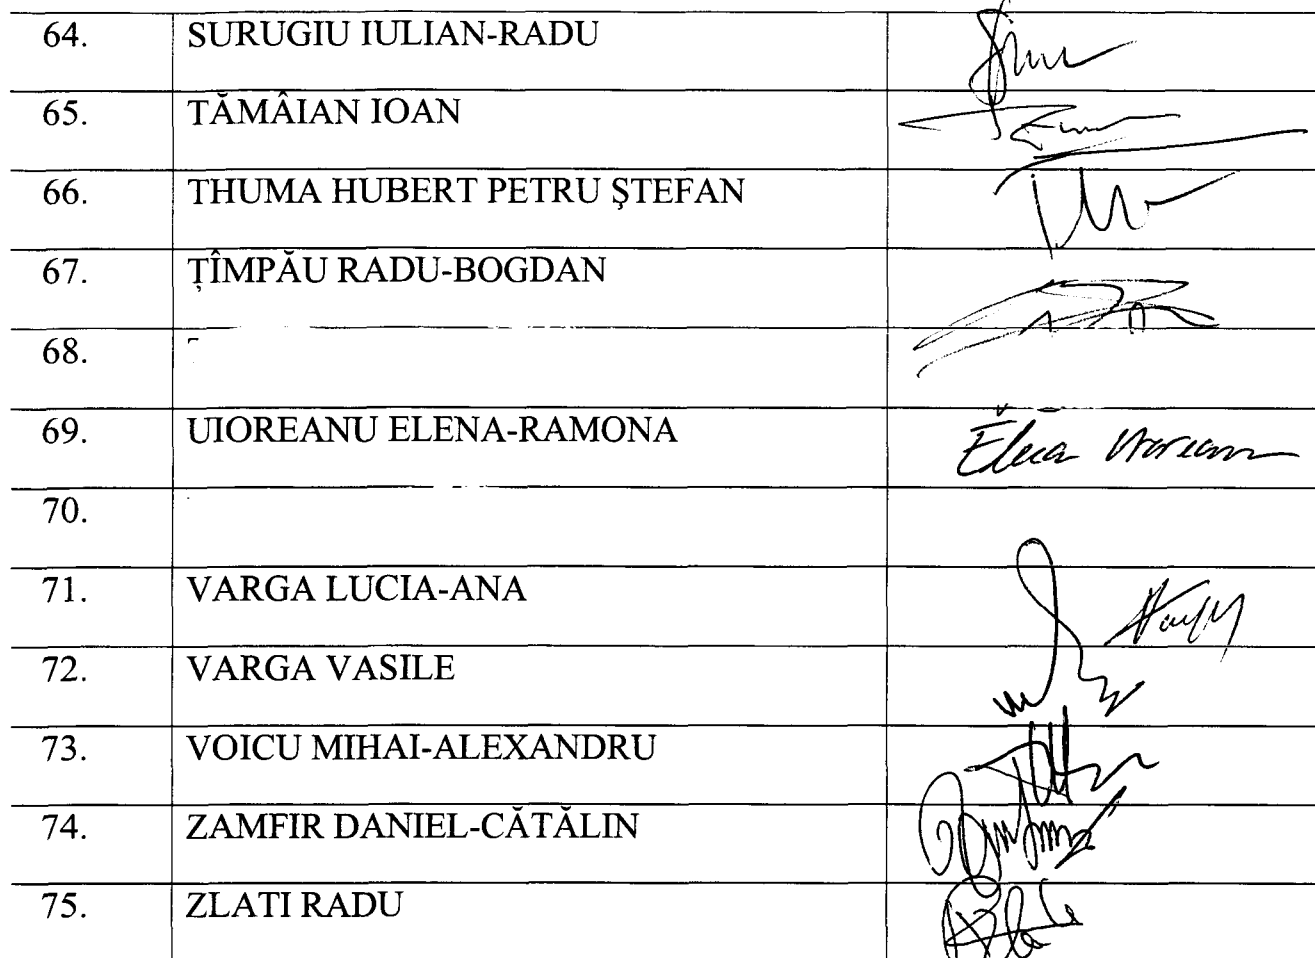 64. SURUGIU IULIAN-RADU
65. TĂMÂIAN IOAN
66. THUMA HUBERT PETRU ŞTEFAN
67. ȚÎMPĂU RADU-BOGDAN
68.
69. UIOREANU ELENA-RAMONA Elena Uioreanu
70.
71. VARGA LUCIA-ANA
72. VARGA VASILE
73. VOICU MIHAI-ALEXANDRU
74. ZAMFIR DANIEL-CĂTĂLIN
75. ZLATI RADU